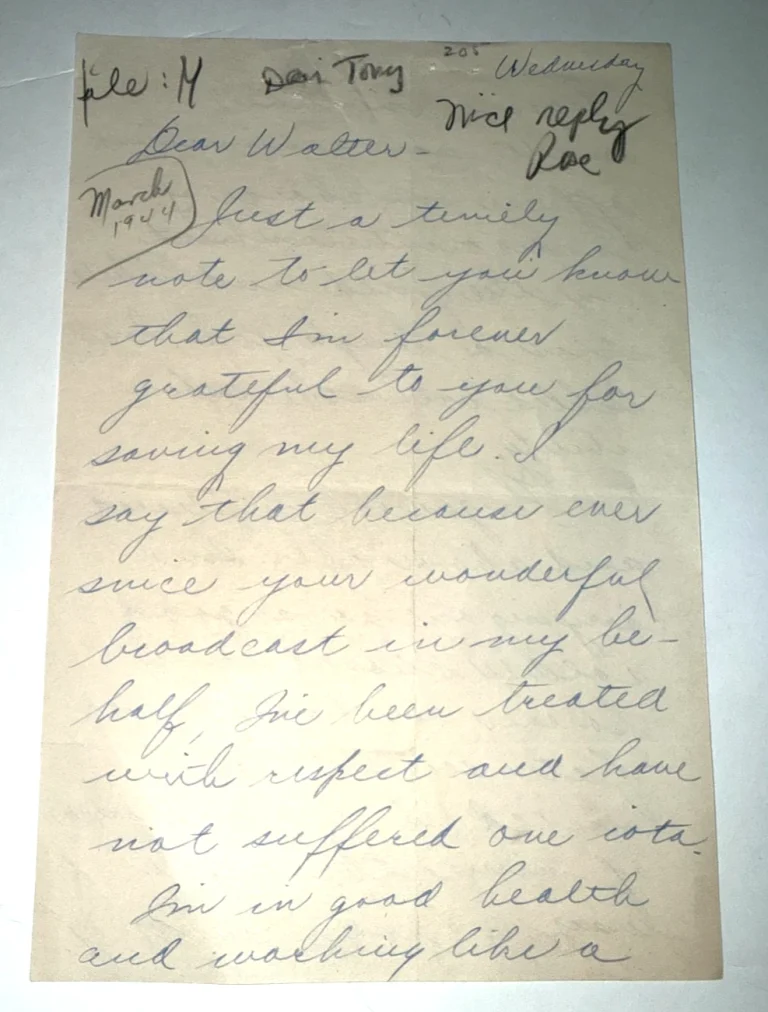 205 Wednesday
file: M Dear Tony
Nice reply
Rose
Dear Walter -
March
1944
Just a timely
note to let you know
that I'm forever
grateful to you for
saving my life. I
say that because ever
since your wonderful
broadcast in my be-
half, I've been treated
with respect and have
not suffered one iota.
I'm in good health
and working like a